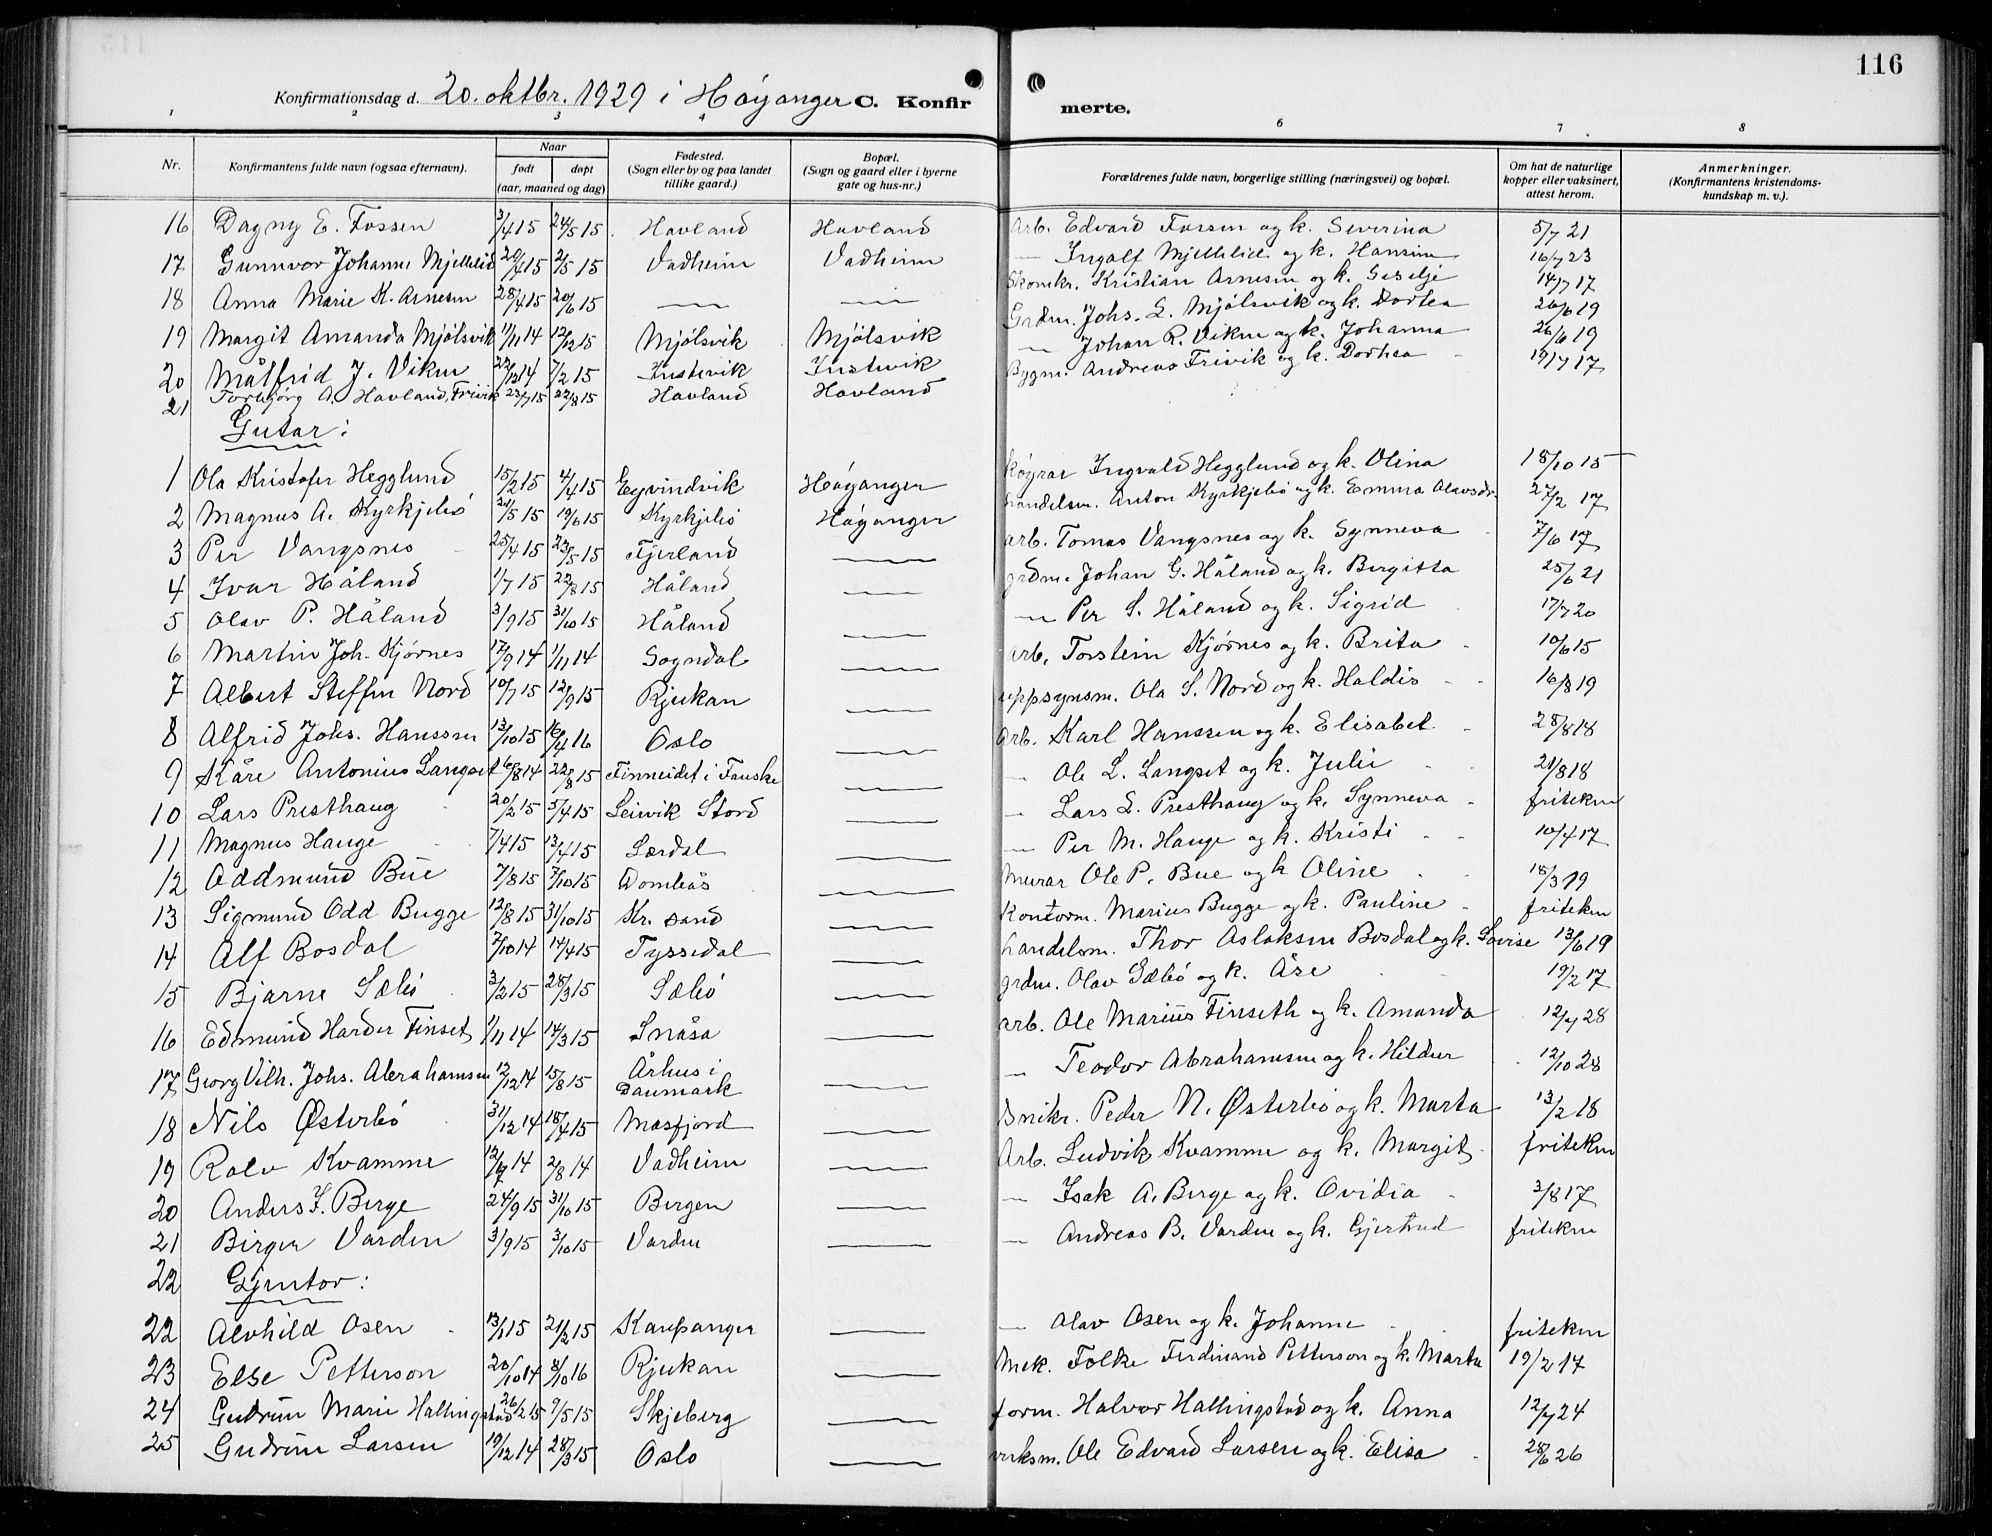 116
Konfirmationsdag d. 20. oktbr. 1929 i Høyanger C. Konfirmerte.
1 2 3 4 6 7 8
Nr. Konfirmantens fulde navn (ogsaa efternavn). Naar født døpt (aar, maaned og dag) Fødested. (Sogn eller by og paa landet tillike gaard.) Bopæl. (Sogn og gaard eller i byerne gate og hus-nr.) Forældrenes fulde navn, borgerlige stilling (næringsvei) og bopæl. Om hat de naturlige kopper eller vaksinert, attest herom. Anmerkninger. (Konfirmantens kristendoms-kundskap m. v.).
16 Dagny E. Fossen 3/4 15 24/5 15 Havland Havland Arb. Edvard Fossen og k. Severina 5/7 21
17 Gunnvor Johanne Mjelhlid 20/4 15 2/5 15 Vadheim Vadheim — Ingolf Mjelhlid og k. Hansine 16/7 23
18 Anna Marie K. Arnesen 28/4 15 20/6 15 — — Skomkr. Kristian Arnesen og k. Seselje 14/7 17
19 Margit Amanda Mjølsvik 11/11 14 12/12 15 Mjølsvik Mjølsvik Grdm. Johs. L. Mjølsvik og k. Dortea 26/6 19
20 Målfrid J. Viken 22/12 14 7/2 15 Instevik Instevik — Johan R. Viken og k. Johanna 26/6 19
21 Torbjørg A. Havland, Frivik 23/7 15 22/8 15 Havland Havland Bygm. Andreas Frivik og k. Dorhea 19/7 17
Gutar:
1 Ola Kristofer Hegglund 15/2 15 4/4 15 Eyvindvik Høyanger køyrar Ingvald Hegglund og k. Olina 18/10 15
2 Magnus A. Kyrkjebø 24/5 15 19/6 15 Kyrkjebø Høyanger handelsm. Anton Kyrkjebø og k. Emma Olavsdr. 27/2 17
3 Per Vangsnes 25/4 15 23/5 15 Fjerland — arb. Tomas Vangsnes og k. Synneva 7/6 17
4 Ivar Håland 1/7 15 22/8 15 Håland — grdm. Johan G. Håland og k. Birgitta 25/6 21
5 Olav P. Håland 3/9 15 31/10 15 Håland — — Per S. Håland og k. Sigrid 17/7 20
6 Martin Joh. Kjørnes 17/9 14 1/11 14 Sogndal — arb. Torstein Kjørnes og k. Brita 10/6 15
7 Albert Steffen Nord 10/7 15 12/9 15 Rjukan — uppsynsm. Ola S. Nord og k. Haldis 16/8 19
8 Alfrid Johs. Hanssen 13/10 15 16/4 16 Oslo — Arb. Karl Hanssen og k. Elisabet 28/8 18
9 Kåre Antonius Langset 6/8 14 22/8 15 Finneidet i Fauske — — Ole L. Langset og k. Julie 21/8 18
10 Lars Presthaug 20/2 15 5/4 15 Leirvik Stord — — Lars L. Presthaug og k. Synneva friteken
11 Magnus Hauge 7/4 15 13/4 15 Lærdal — — Per M. Hauge og k. Kristi 10/4 17
12 Oddmund Bue 7/8 15 7/10 15 Dombås — Murar Ole P. Bue og k Oline 18/3 19
13 Sigmund Odd Bugge 12/8 15 31/10 15 Kr. sand — Kontorm. Marius Bugge og k. Pauline friteken
14 Alf Bosdal 7/10 14 14/4 15 Tyssedal — handelsm. Thor Aslaksen Bosdal og k. Lovise 13/6 19
15 Bjarne Sæbø 3/2 15 28/3 15 Sæbø — grdm. Olav Sæbø og k. Åse 19/2 17
16 Edmund Harder Finset 1/11 14 14/3 15 Snåsa — arb. Ole Marius Finseth og k. Amanda 12/4 28
17 Georg Vilh. Johs. Abrahamsen 12/12 14 15/8 15 Århus i Danmark — — Teodor Abrahamsen og k. Hildur 12/10 28
18 Nils Østerbø 31/12 14 18/4 15 Masfjord — Snikr. Peder N. Østerbø og k. Marta 13/2 18
19 Rolv Kvamme 12/7 14 2/8 14 Vadheim — Arb. Ludvik Kvamme og k. Margit friteken
20 Anders I. Berge 24/9 15 31/10 15 Bergen — — Isak A. Berge og k. Ovidia 3/8 17
21 Birger Varden 3/9 15 3/10 15 Varden — — Andreas B. Varden og k. Gjertrud friteken
22 Gjentor:
22 Alvhild Osen 13/1 15 21/2 15 Kaupanger — — Olav Osen og k. Johanne friteken
23 Else Petterson 20/10 14 8/10 16 Rjukan — Mek. Folke Ferdinand Petterson og k. Marta 19/2 17
24 Gudrun Marie Hallingstad 26/2 15 9/5 15 Skjeberg — form. Halvor Hallingstad og k. Anna 12/4 24
25 Gudrun Larsen 19/12 14 28/3 15 Oslo — verksm. Ole Edvard Larsen og k. Elisa 28/6 26